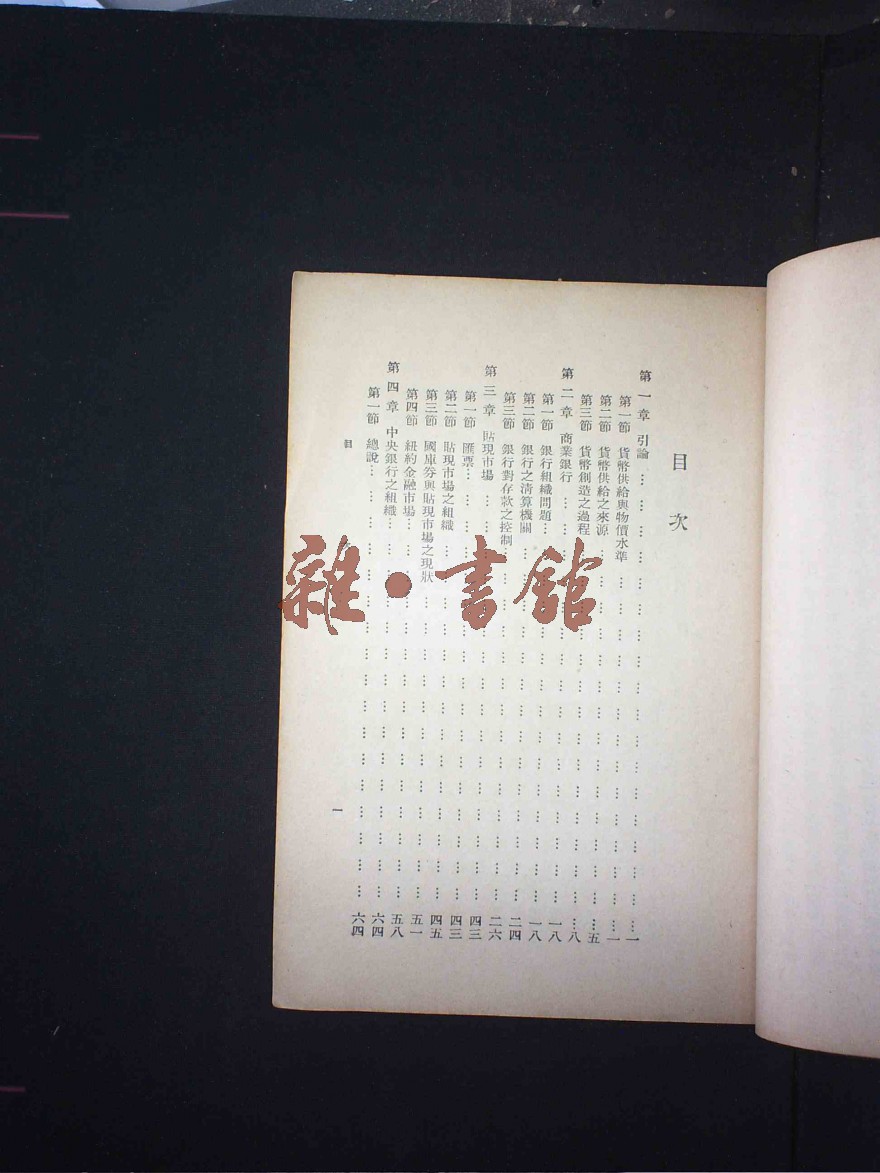 目次
第一章 引論………………………………一
第一節 貨幣供給與物價水準………………………………一
第二節 貨幣供給之來源………………………………五
第三節 貨幣創造之過程………………………………八
第二章 商業銀行………………………………一八
第一節 銀行組織問題………………………………一八
第二節 銀行之清算機關………………………………二四
第三節 銀行對存款之控制………………………………二六
第三章 貼現市場………………………………四三
第一節 匯票………………………………四三
第二節 貼現市場之組織………………………………四五
第三節 國庫券與貼現市場之現狀………………………………五一
第四節 紐約金融市場………………………………五八
第四章 中央銀行之組織………………………………六四
第一節 總說………………………………六四
目
一
雜·書館